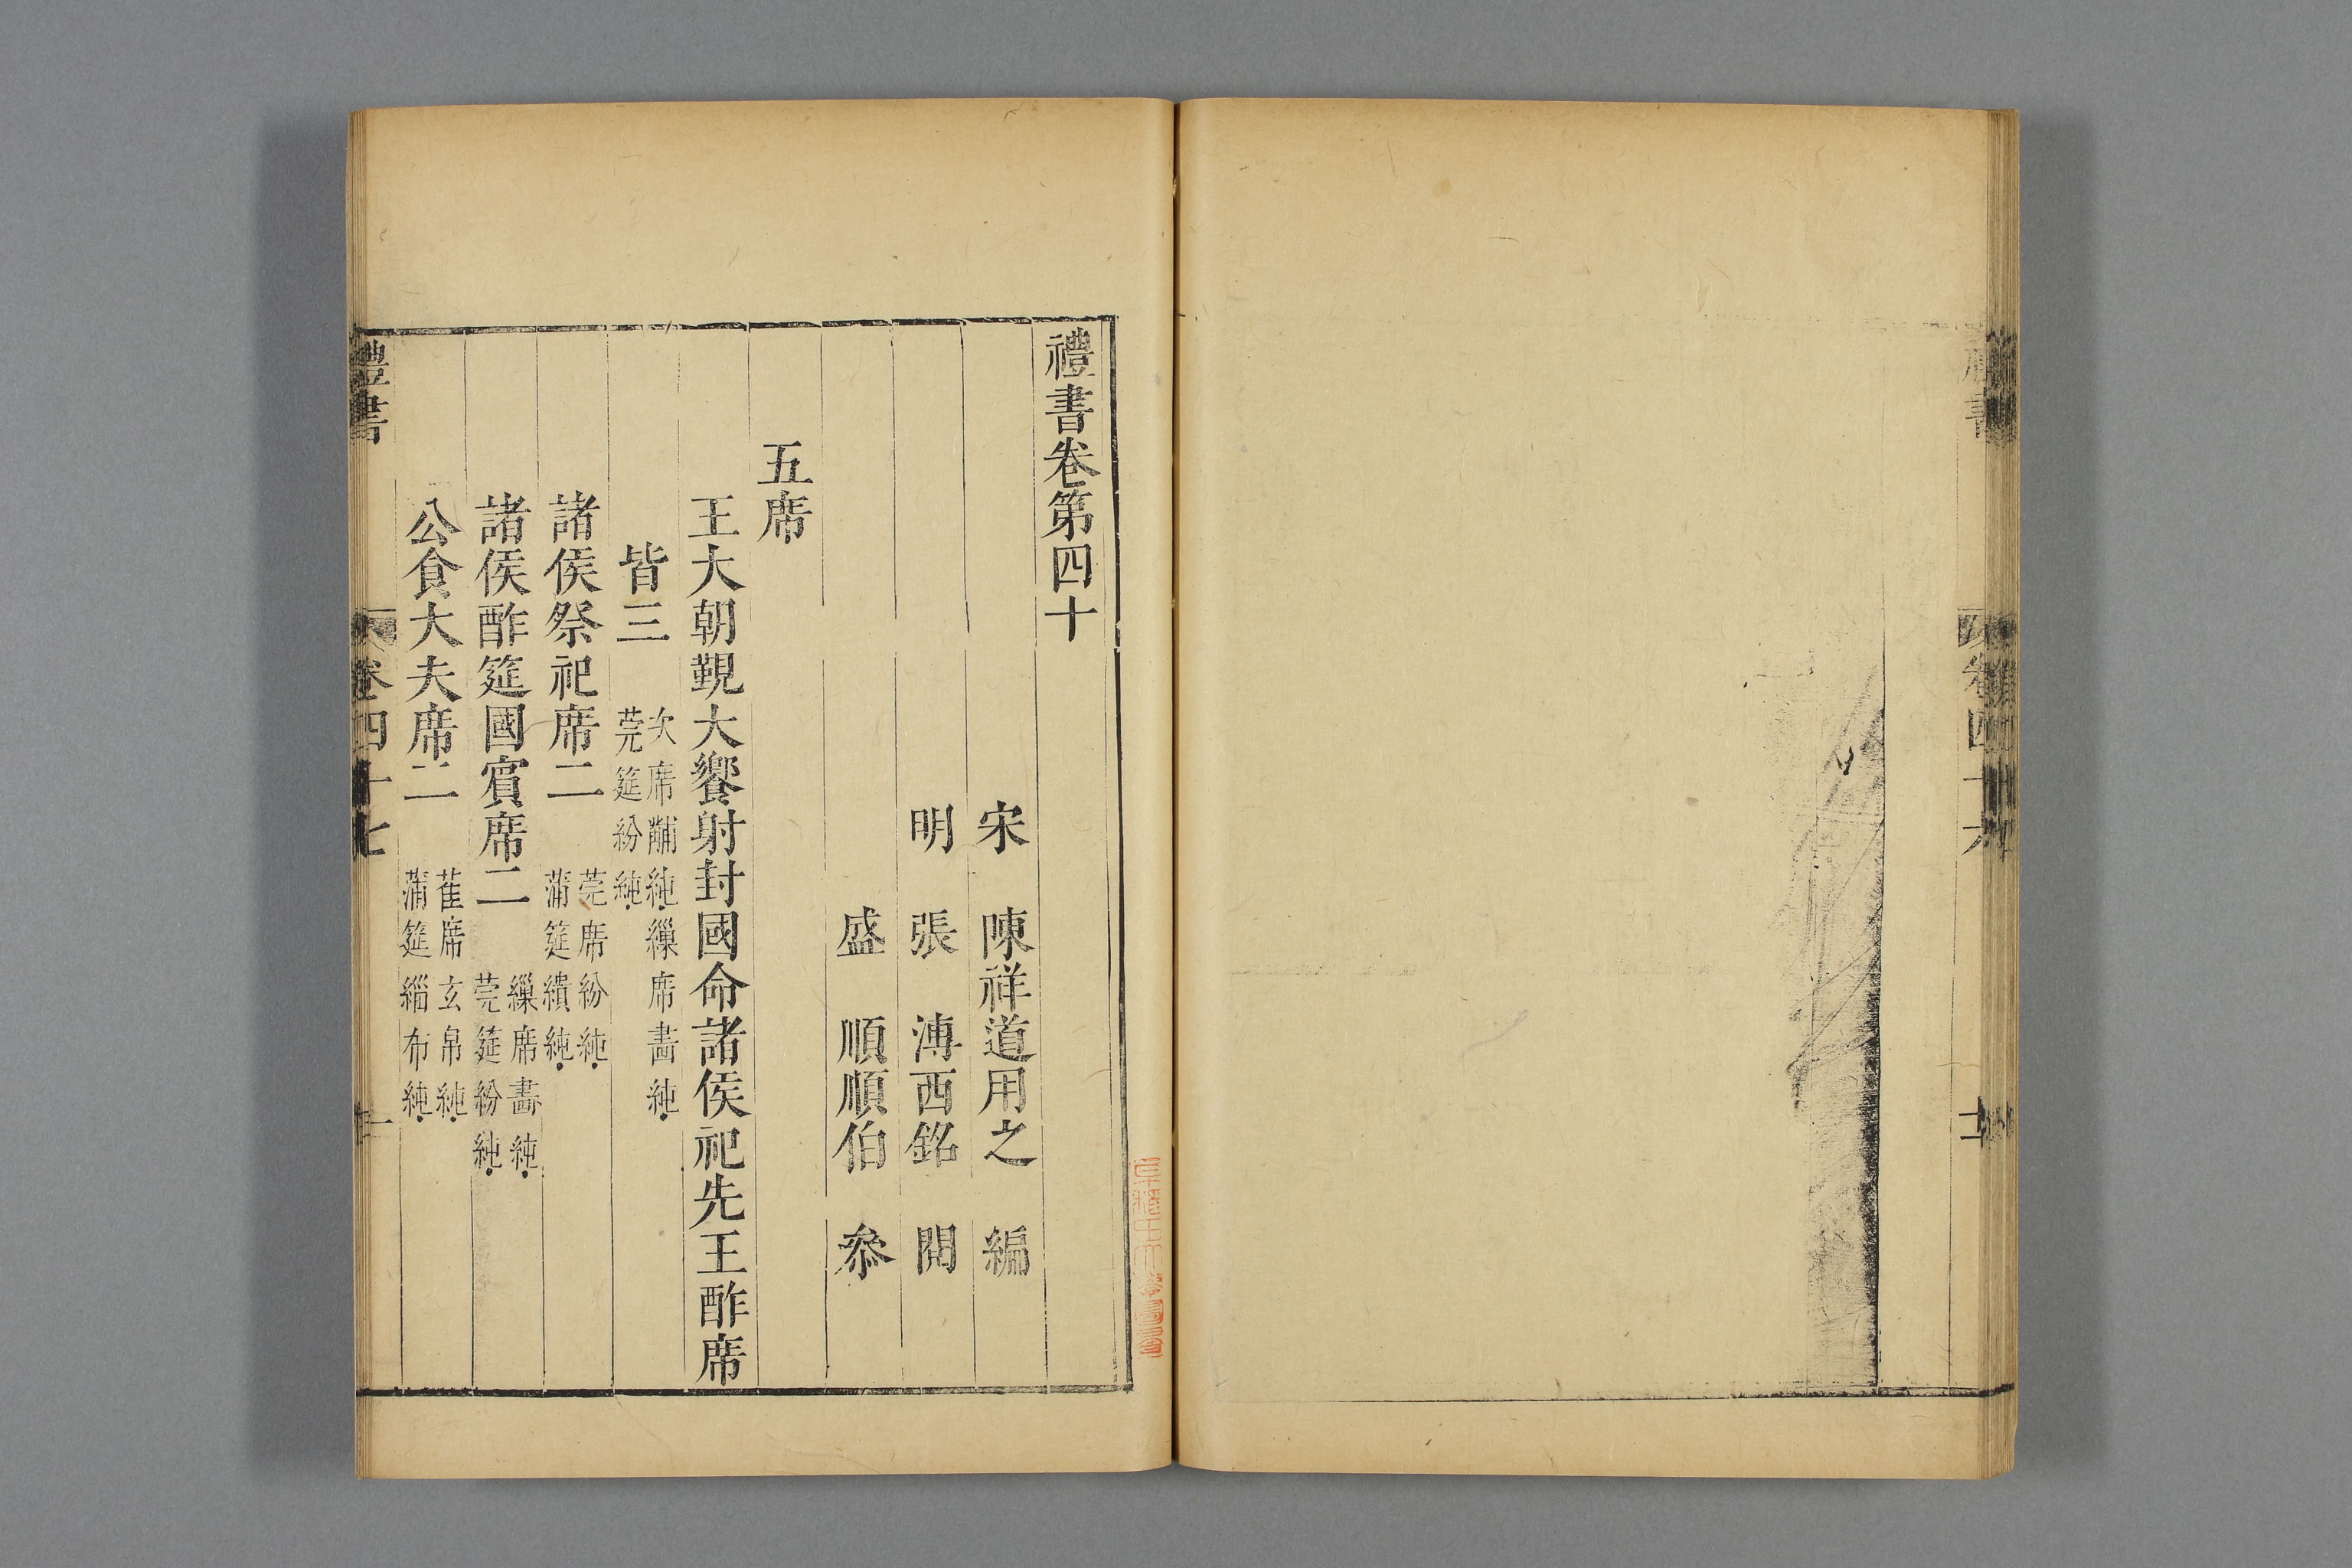 禮書
卷四十六
十
禮書卷第四十
宋 陳祥道用之 編
明 張 溥西銘 閱
盛 順順伯 叅
五席
王大朝覲大饗射封國命諸侯祀先王酢席
皆三 次席黼純繅席畫純
莞筵紛純
諸侯祭祀席二 莞席紛純
蒲筵繢純
諸侯酢筵國賓席二 繅席畫純
莞筵紛純
公食大夫席二 萑席玄帛純
蒲筵緇布純
禮書
卷四十七
一